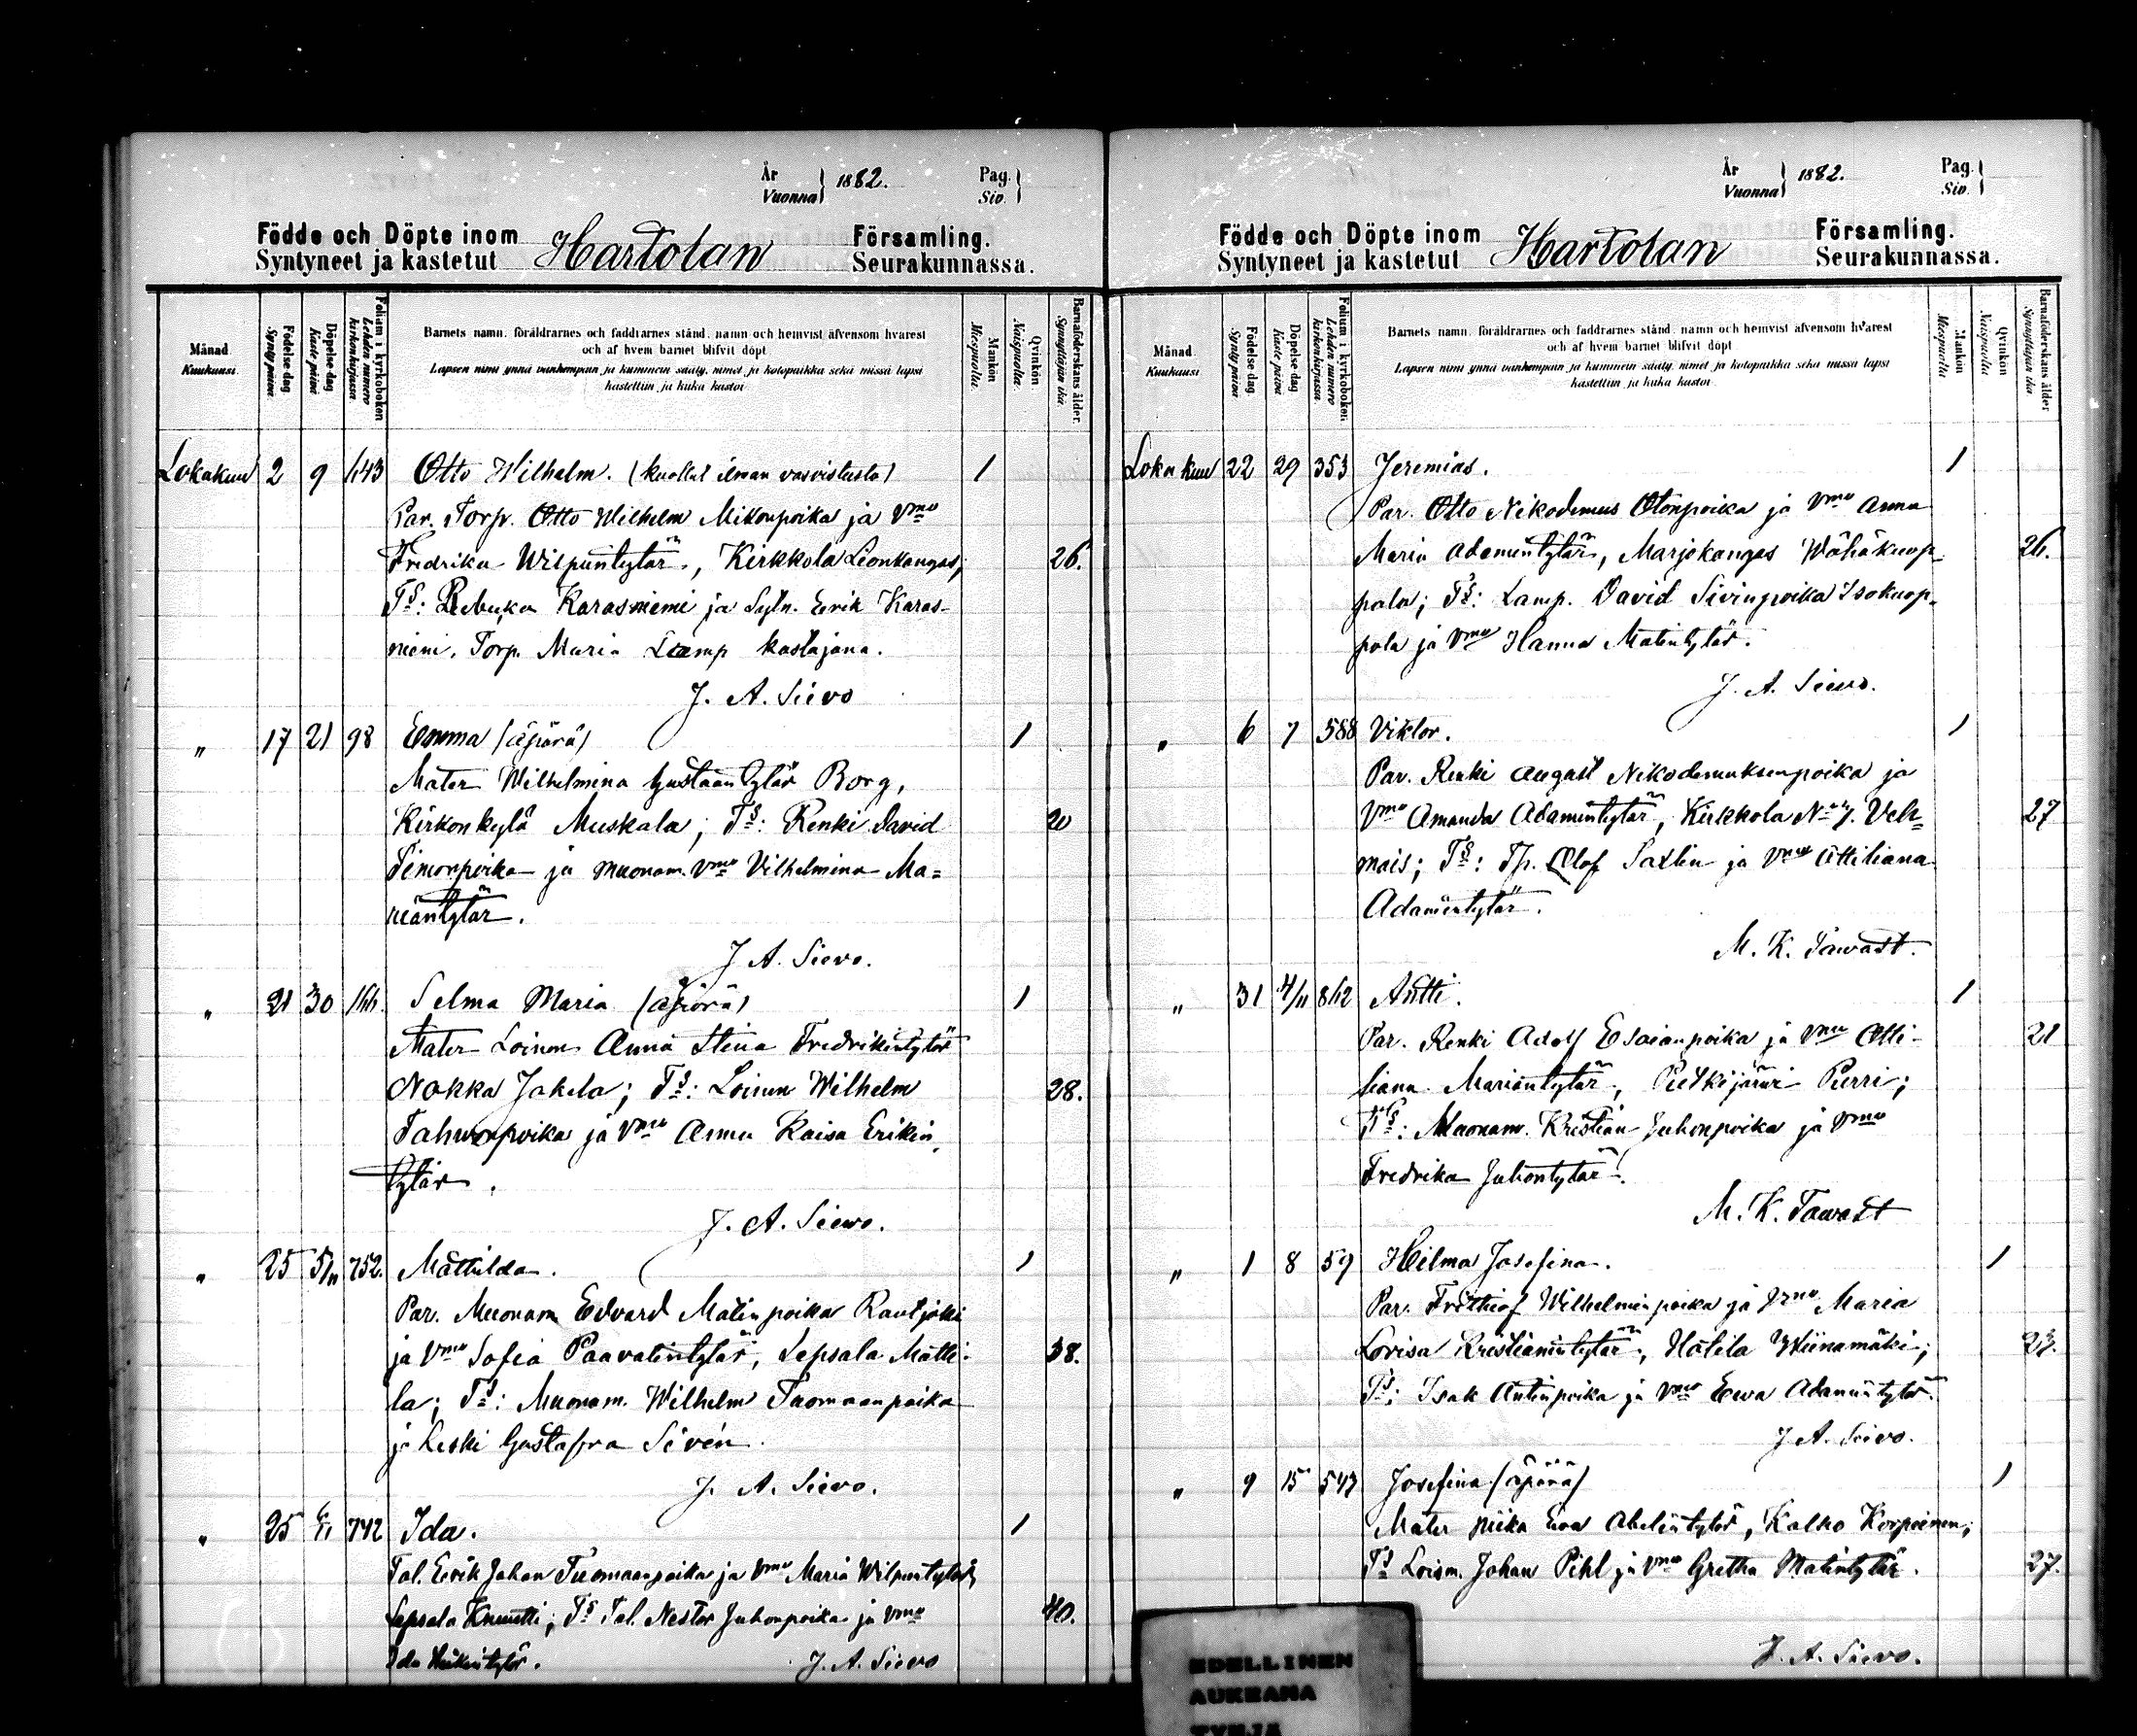 År
Vuonna } 1882.
Pag.
Siv. }
Födde och Döpte inom
Syntyneet ja kastetut
Hartolan
Församling.
Seurakunnassa.
Månad.
Kuukausi.
Födelse dag
Synty päivä
Döpelse dag
Kaste päivä
Folium i kyrkoboken
Lehden numero kirkonkirjassa.
Barnets namn, föräldrarnes och faddrarnes stånd, namn och hemvist äfvensom hvarest
och af hvem barnet blifvit döpt
Lapsen nimi ynnä vanhempain ja kummein sääty, nimet ja kotopaikka sekä missä lapsi
kastettiin ja kuka kastoi
Mankön
Miespuolta.
Qvinkön
Naispuolta.
Barnaföderskans ålder.
Synnyttäjän ikä
Lokakuu 2 9 143 Otto Wilhelm. (kuollut ilman vasvistusta) 1
Par. Torp. Otto Wilhelm Mikonpoika ja Vmo
Fredrika Wilpuntytär, Kirkkola Leonkangas; 26.
Ts: Karasniemi ja Sytn. Eerik Karas-
niemi. Torp. Maria Lamp kastajana.
J. A. Sievo
" 17 21 98 Emma (äpärä) 1
Mater Wilhelmina Gustaantytär Borg,
Kirkonkylä Muskala; Ts: Renki David 20
Simonpoika ja muonam. Vmo Vilhelmina Ma=
neäntytär.
J. A. Sievo.
" 21 30 166. Selma Maria (äpärä) 1
Mater Loinen Anna Stina Fredrikintytär
Nokka Jakela; Ts: Loinen Wilhelm 28.
Tahwonpoika ja Vmo Anna Kaisa Erikin
tytär.
J. A. Sievo.
" 25 5/11 752. Mathilda. 1
Par. Muonam Edvard Matinpoika Rautjoki
ja Vmo Sofia Paavalintytär, Sepsala Matti- 38.
la; Ts: Muonam. Wilhelm Tuomaanpoika
ja Leski Gustafva Sivén.
J. A. Sievo.
" 25 742 Ida. 1
Tal. Eerik Johan Tuomaanpoika ja Vmo Maria Wilpuntytär,
Sepsala Knuutti; Ts Tal. Nestor Juhonpoika ja Vmo 40.
Ida Heikintytär. J. A. Sievo
År
Vuonna } 1882.
Pag.
Siv. }
Födde och Döpte inom
Syntyneet ja kastetut
Hartolan
Församling.
Seurakunnassa.
Månad.
Kuukausi
Födelse dag
Synty päivä
Döpelse dag
Kaste päivä
Folium i kyrkoboken
Lehden numero kirkonkirjassa.
Barnets namn, föräldrarnes och faddrarnes stånd, namn och hemvist äfvensom hvarest
och af hvem barnet blifvit döpt
Lapsen nimi ynnä vanhempain ja kummein sääty, nimet ja kotopaikka sekä missä lapsi
kastettiin ja kuka kastoi.
Mankön
Miespuolta
Qvinkön
Naispuolta
Barnaföderskans ålder
Synnyttäjän ikä
Lokakuu 22 29 353 Jeremias. 1
Par. Otto Nikodemus Otonpoika ja Vmo Anna
Maria Adamintytär, Marjokangas Wähäkuop- 26.
pala; Ts: Lamp. David Sivinpoika Isokuop-
pala ja Vmo Hanna Matintytär.
J. A. Sievo.
" 6 7 588 Viktor. 1
Par. Renki August Nikodemuksenpoika ja
Vmo Amanda Adamintytär, Kirkkola No 7. Veh= 27
mais; Ts: Tp. Olof Saxlin ja Vmo Ottiliana
Adamintytär.
M. K. Tawast.
" 31 4/11 862 Antti. 1
Par. Renki Adolf Esaianpoika ja Vmo Otti- 21
liana Mariantytär, Putkijärwi Purri;
Ts: Muonam. Kristian Juhonpoika ja Vmo
Fredrika Juhontytär.
M. K. Tawast
" 1 8 59 Hilma Josefina. 1
Par. Frithiof Wilhelminpoika ja Vmo Maria
Lovisa Kristianintytär, Hatila Wiinamäki; 23.
Ts: Isak Antinpoika ja Vmo Ewa Adamintytär.
J. A. Sievo.
" 9 15 547 Josefina (äpärä) 1
Mater piika Eva Abelintytär, Kalho Korpeinen;
Ts Loism. Johan Pihl ja Vmo Gretha Matintytär. 27.
J. A. Sievo.
EDELLINEN
AUKEAMA
TYHJÄ